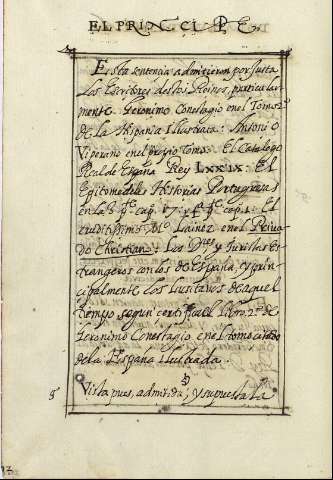 EL PRINCIPE
Esta sentencia admitieron por Justa
Los Escritores destos Reinos, particular
mente. Geronimo Conestagio en el Tomo 2º
de la Hispania Illustrata: Antonio
Viperano en el propio Tomo. El Catalogo
Real de España Rey LXXIX: El
Epitome de las Historias Portuguesas
en la 3 pte cap. 17. 4 pte cap. 1. El
eruditissimo Mº Lainez en el Priva
do Christiano: Los D res y Juristas Es
trangeros con los de España, y prin
cipalmente los Lusitanos de aquel
tiempo segun certifica el libro 2º de
Geronimo Conestagio en el tomo citado
de la España Ilustrada.
Vista pues, admitida, y supuesta la